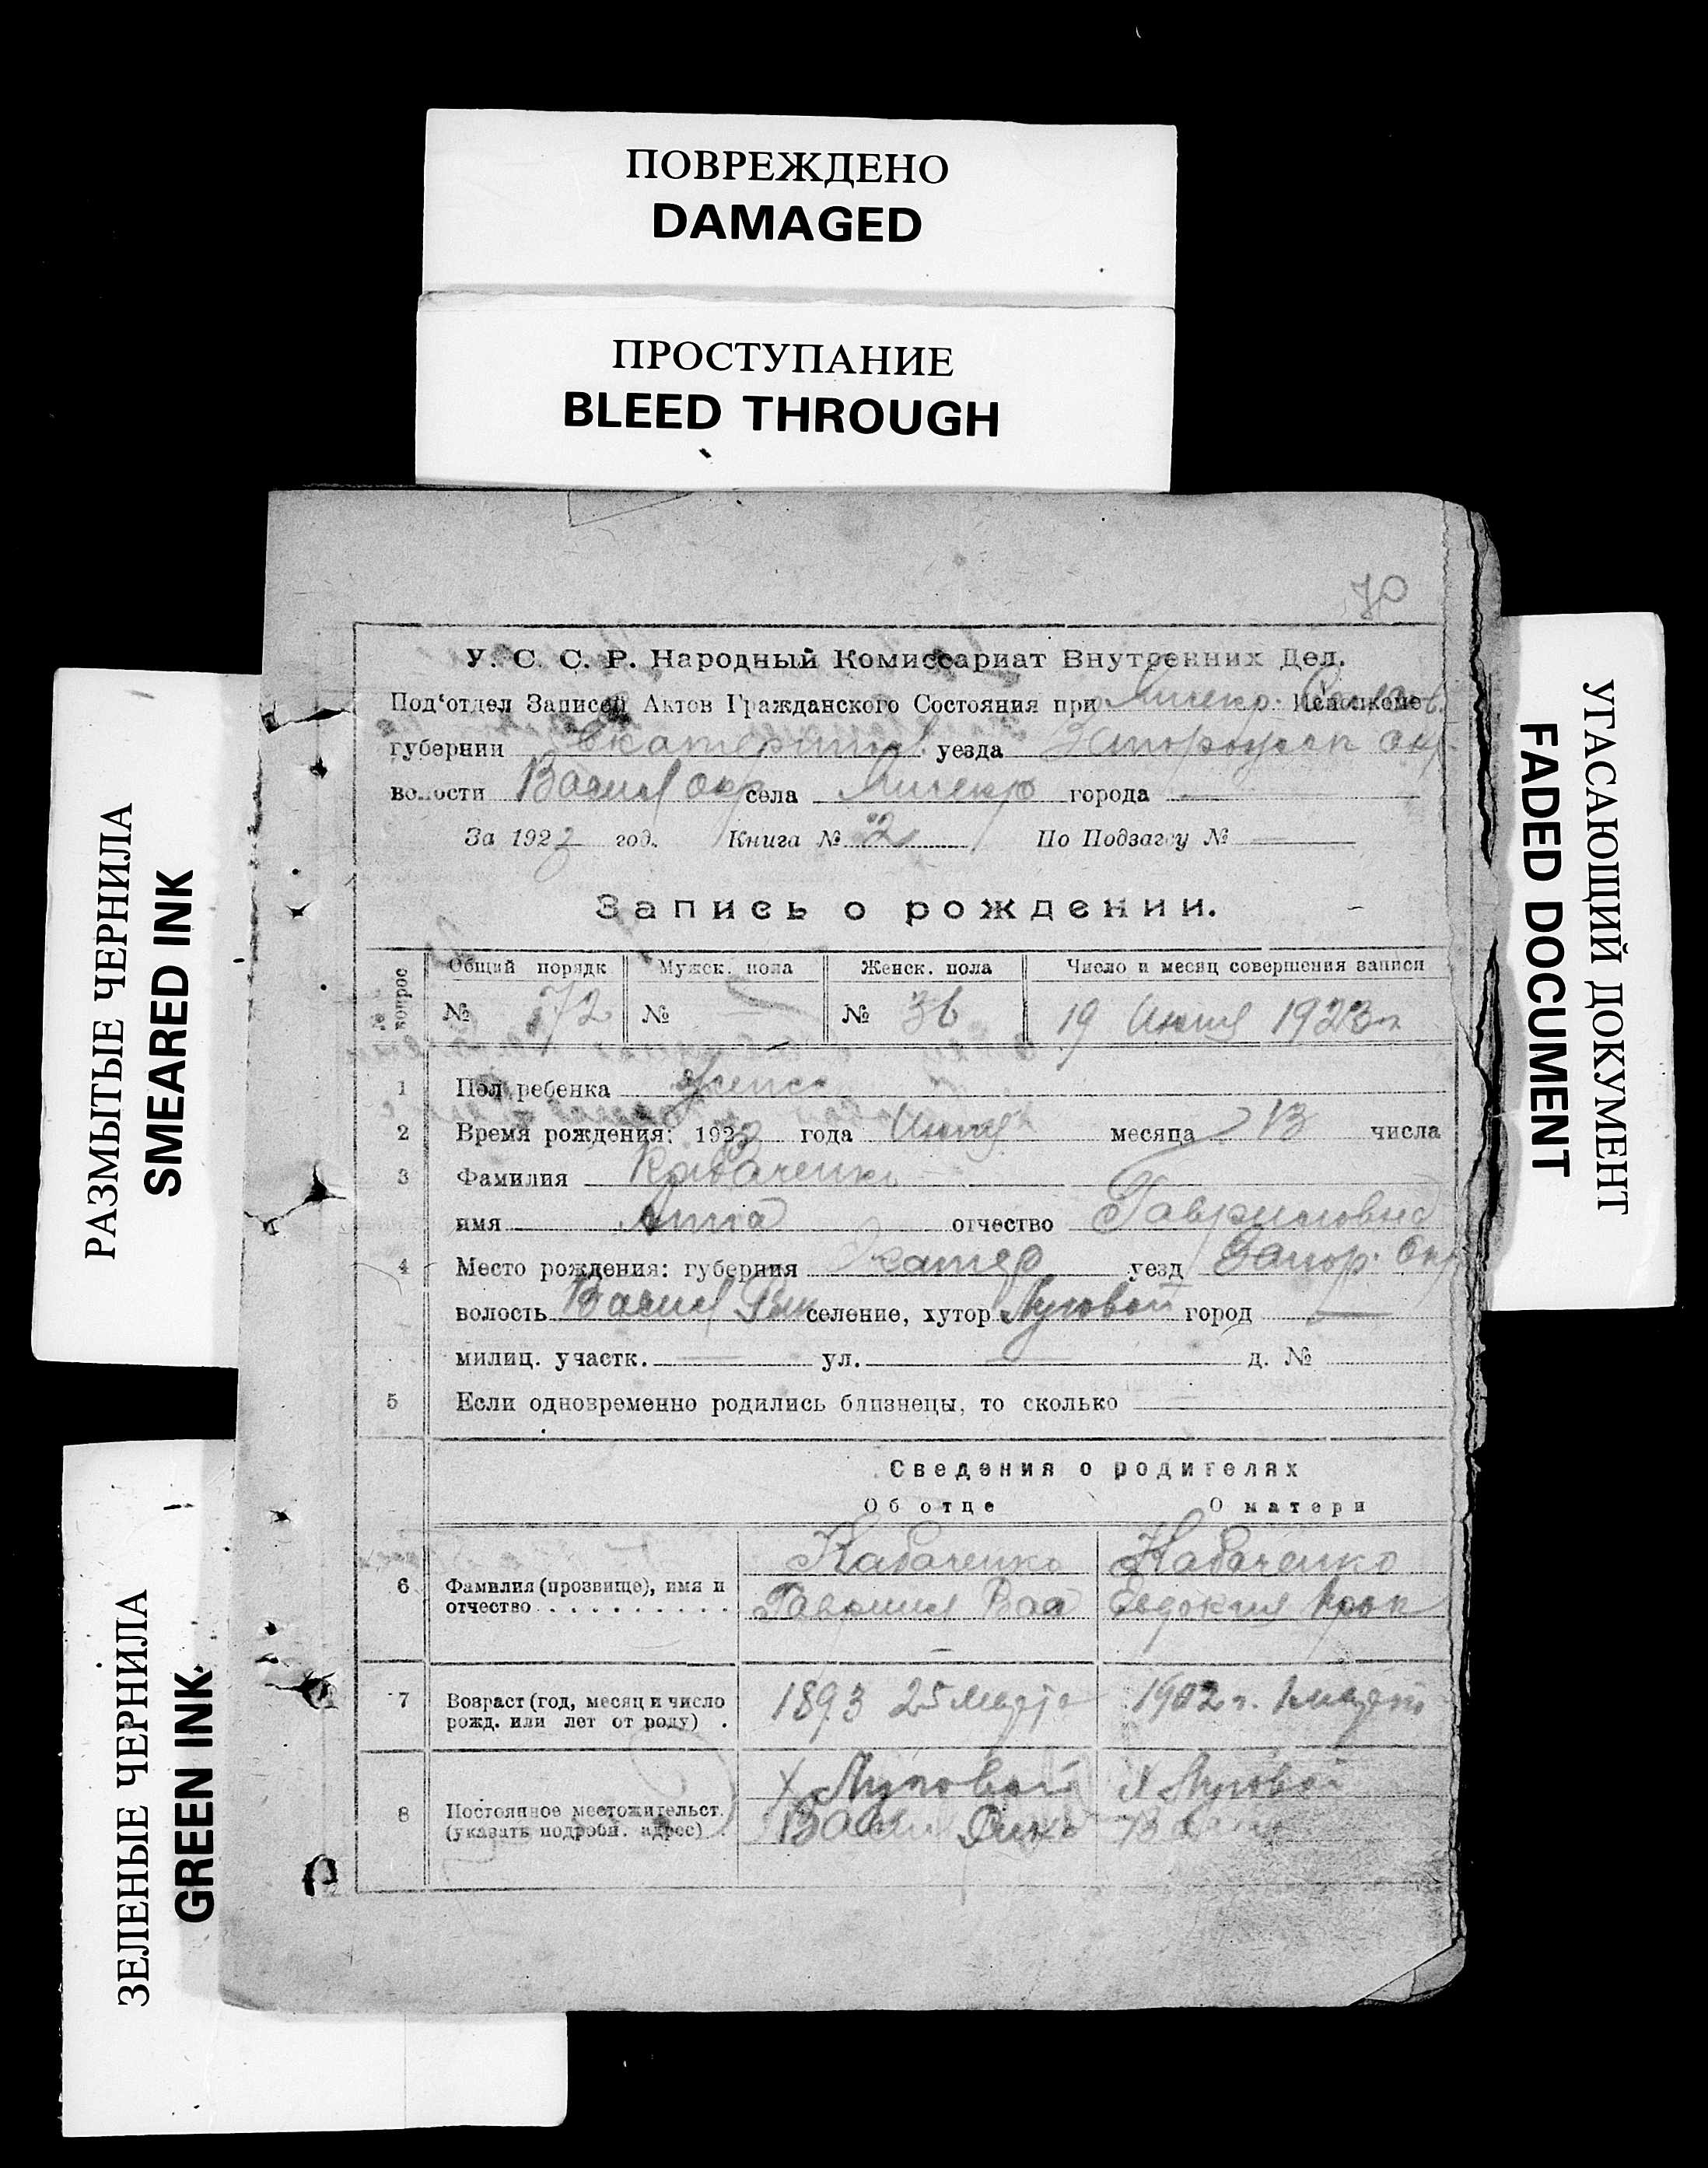 ПОВРЕЖДЕНО
DAMAGED
ПРОСТУПАНИЕ
BLEED THROUGH
РАЗМЫТЫЕ ЧЕРНИЛА
SMEARED INK
ЗЕЛЕНЫЕ ЧЕРНИЛА
GREEN INK
УГАСАЮЩИЙ ДОКУМЕНТ
FADED DOCUMENT
У. С. С. Р. Народный Комиссариат Внутренних Дел.
Под'отдел Записей Актов Гражданского Состояния при
губернии Екатеринос уезда
волости Васил окр села города —
За 1923 год. Книга № 2 По Подзагсу № —
Запись о рождении.
№ вопрос Общий порядк Мужск. пола Женск. пола Число и месяц совершения записи
№ 72 № — № 36 19 Июня 1923 г
1 Пол ребенка женск
2 Время рождения: 1923 года месяца 13 числа
3 Фамилия Кабаченко
имя Анна отчество Гавриловна
4 Место рождения: губерния Екатер уезд Запор. Окр
волость Васил селение, хутор Луговой город —
милиц. участк. — ул. — д. №
5 Если одновременно родились близнецы, то сколько
Сведения о родителях
Об отце О матери
6 Фамилия (прозвище), имя и отчество . . . . . . . . . .
Кабаченко Кабаченко
Гаврил Евдокия
7 Возраст (год, месяц и число рожд. или лет от роду) .
1893 25 Марта 1902 г. 1 марта
8 Постоянное местожительст. (указать подробн. адрес) .
х Луговой х Луговой
Васил